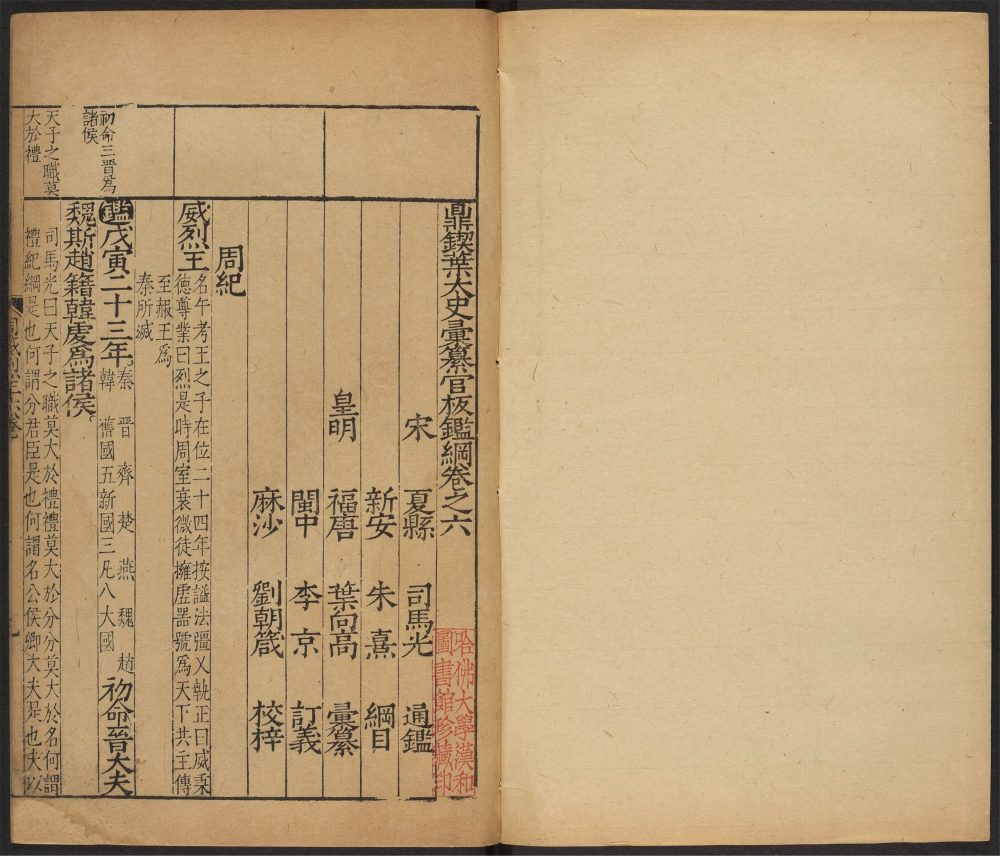 鼎鍥葉太史彙纂官板鑑綱卷之六
宋 夏縣 司馬光 通鑑
新安 朱熹 綱目
皇明 福唐 葉向高 彙纂
閩中 李京 訂義
麻沙 劉朝箴 校梓
周紀
威烈王
名午考王之子在位二十四年按謚法彊乂執正曰威秉
德尊業曰烈是時周室衰微徒擁虛器號為天下共主傳
至赧王為
秦所滅
初命三晉為
諸侯
鑑戊寅二十三年
秦 晉 齊 楚 燕 魏 趙
韓 舊國五新國三凡八大國
初命晉大夫
魏斯趙籍韓虔為諸侯
天子之職莫
大於禮
司馬光曰天子之職莫大於禮禮莫大於分分莫大於名何謂
禮紀綱是也何謂分君臣是也何謂名公侯卿大夫是也夫以
哈佛大學漢和
圖書館珍藏印